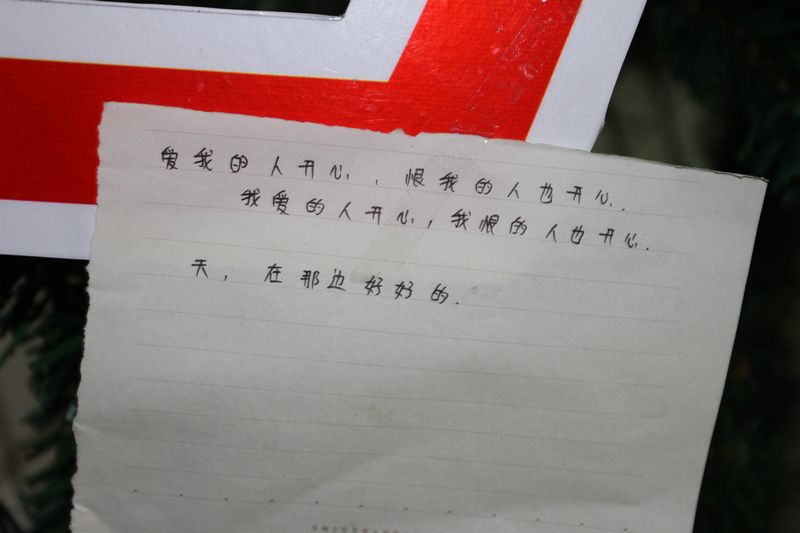 爱我的人开心，恨我的人也开心.
我爱的人开心，我恨的人也开心.
天，在那边好好的.